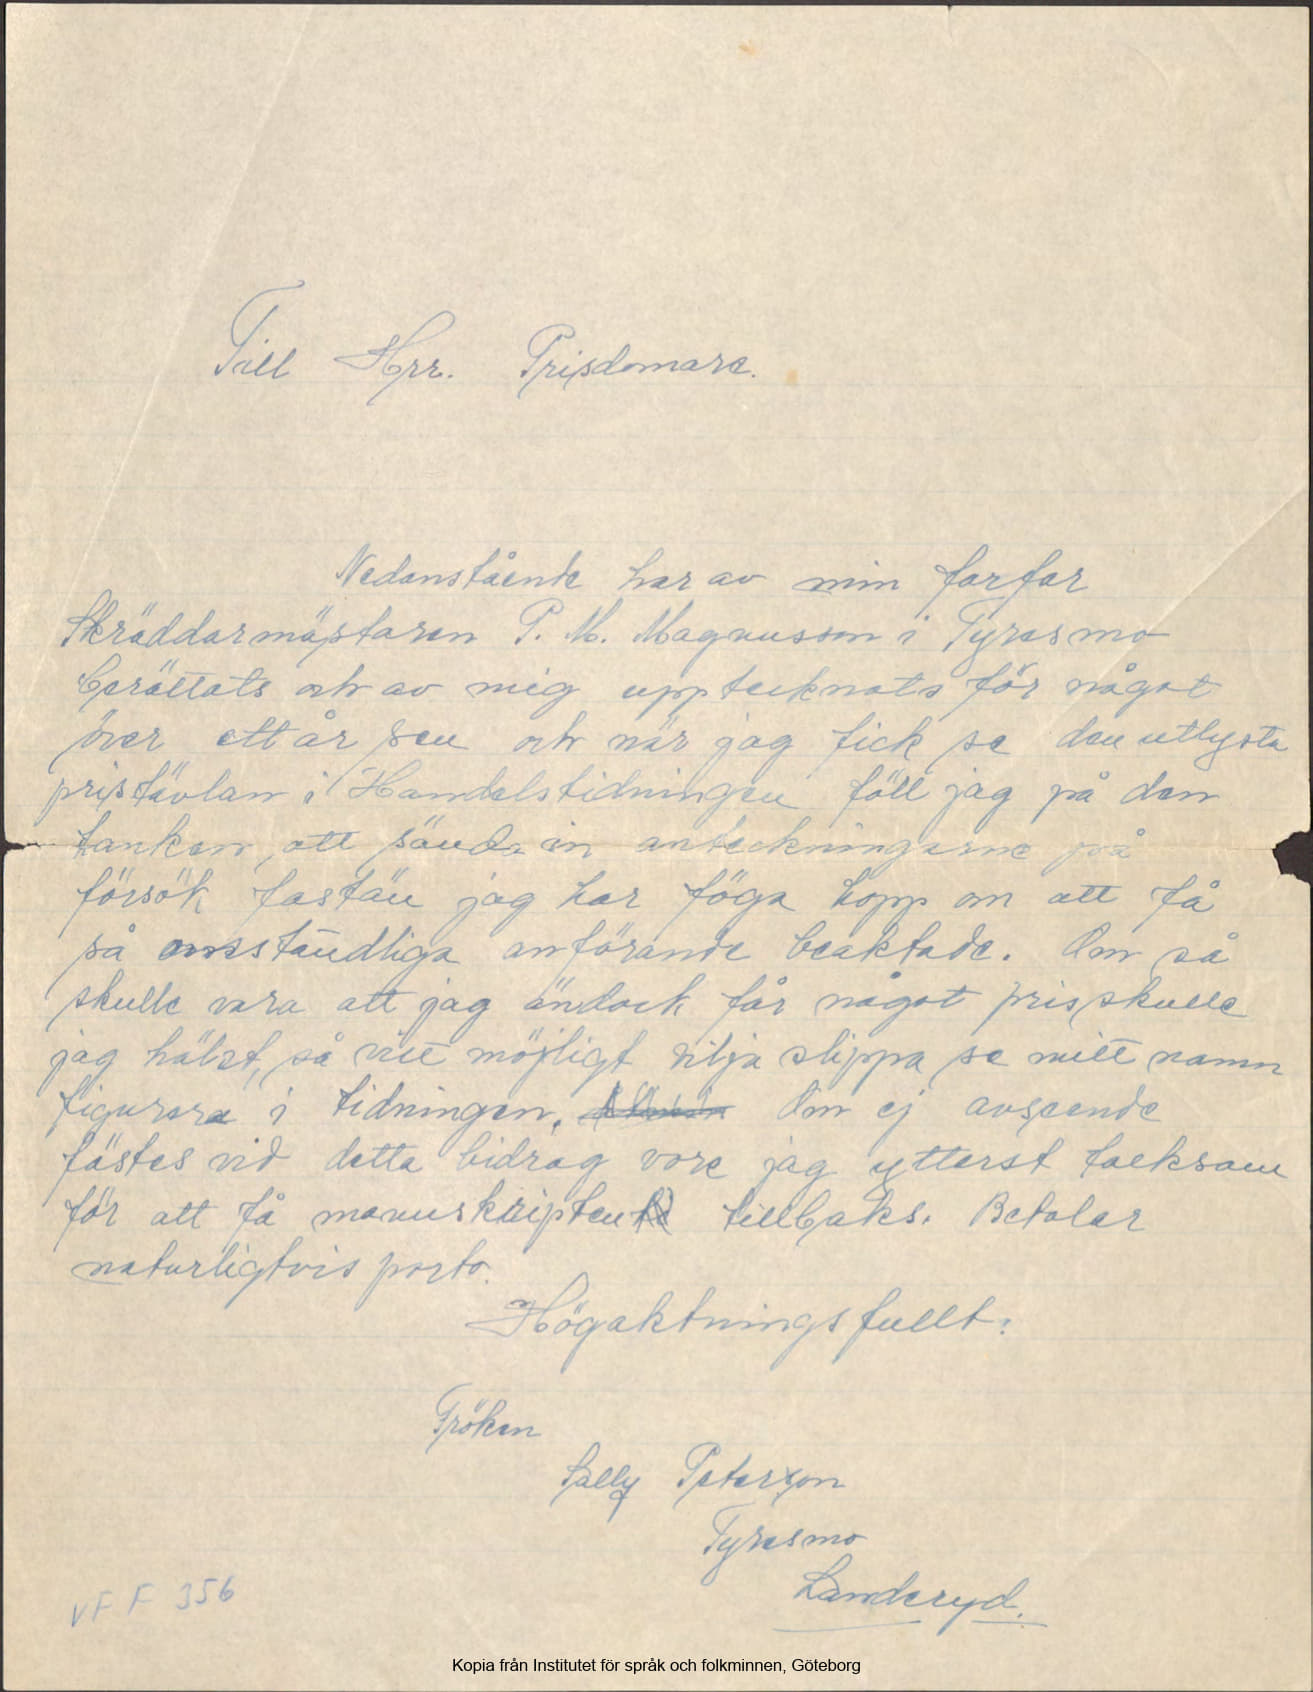 Till Hrr. Prisdomare.
Nedanstående har av min farfar
Skräddarmästaren P. M. Magnusson i Tyresmo
berättats och av mig upptecknats för något
över ett år sen och när jag fick se den utlysta
pristävlan i Handelstidningen föll jag på den
tanken, att sända in anteckningarne på
försök fastän jag har föga hopp om att få
så omständliga anförande beaktade. Om så
skulle vara att jag ändock får något pris, skulle
jag hälst, så vitt möjligt vilja slippa se mitt namn
figurera i tidningen. Om ej avseende
fästes vid detta bidrag vore jag ytterst tacksam
för att få manuskripten tillbaks. Betalar
naturligtvis porto.
Högaktningsfullt:
Fröken
Sally Peterson
Tyresmo
Landeryd.
VFF 356
Kopia från Institutet för språk och folkminnen, Göteborg